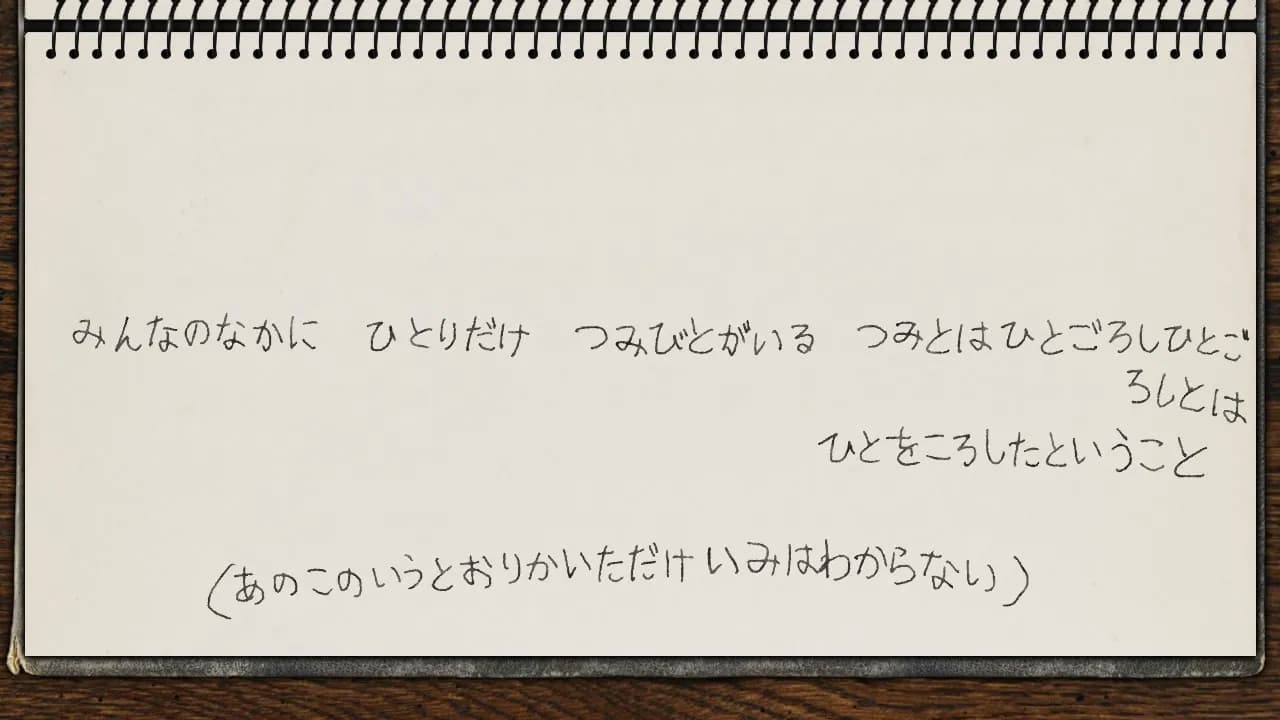 みんなのなかに　ひとりだけ　つみびとがいる　つみとはひとごろしひとご
ろしとは
ひとをころしたということ
(あのこのいうとおりかいただけいみはわからない)